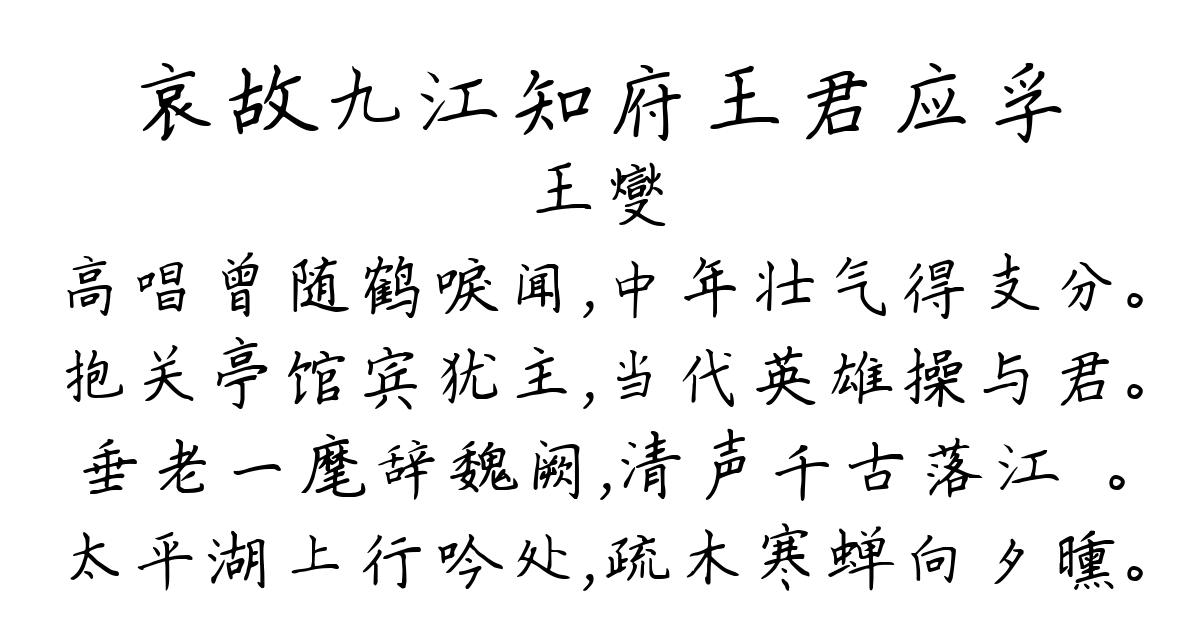 哀故九江知府王君应孚
王燮
高唱曾随鹤唳闻,中年壮气得支分。
抱关亭馆宾犹主,当代英雄操与君。
垂老一麾辞魏阙,清声千古落江 。
太平湖上行吟处,疏木寒蝉向夕曛。